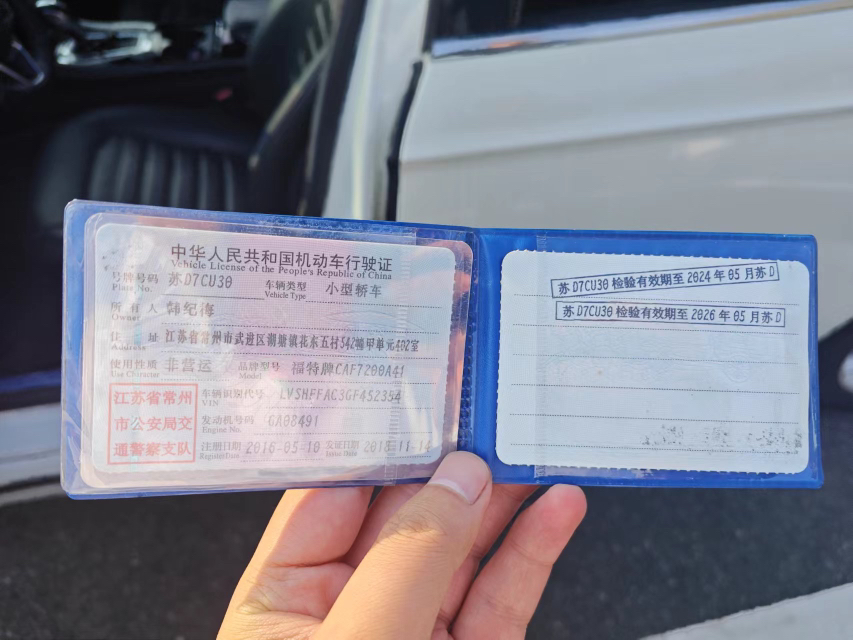 中华人民共和国机动车行驶证
Vehicle License of the People's Republic of China
号牌号码 苏D7CU30 车辆类型 小型轿车
Plate No. Vehicle Type
所有人 韩纪海
Owner
住址 江苏省常州市武进区湖塘镇花东五村542幢甲单元402室
Address
使用性质 非营运 品牌型号 福特牌CAF7200A41
Use Character Model
江苏省常州
市公安局交
通警察支队
车辆识别代号 LVSHFFAC3GF452354
VIN
发动机号码 GA08491
Engine No.
注册日期 2016-05-10 发证日期 2018-11-14
Issue Date
苏D7CU30 检验有效期至 2024年05月苏D
苏D7CU30 检验有效期至 2026年05月苏D